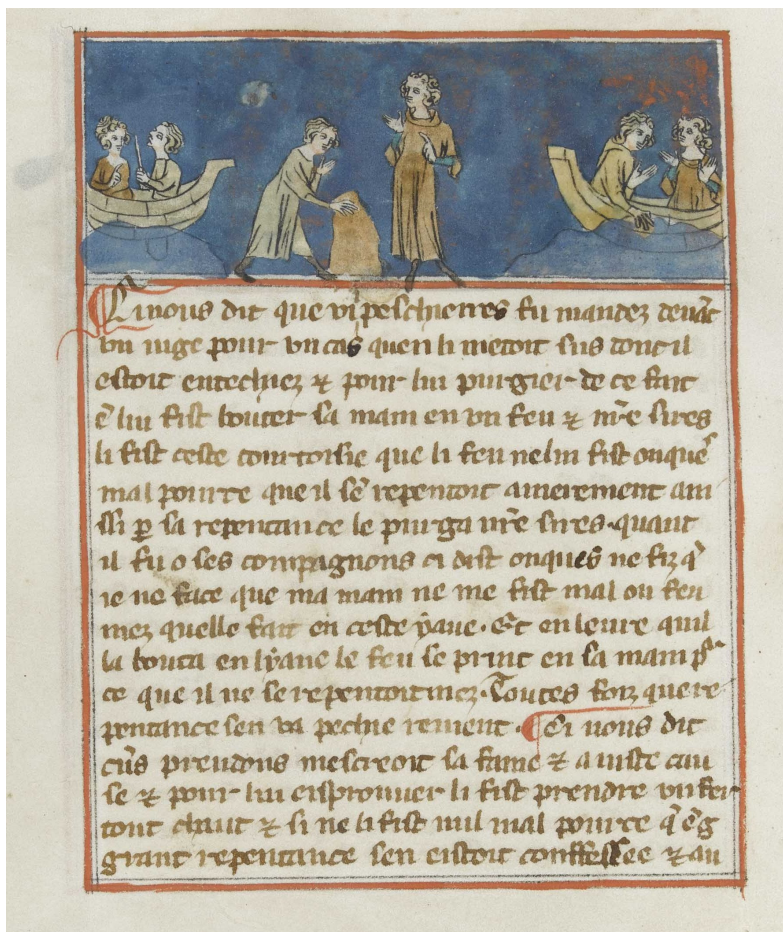 Ci nous dit que vns peschierres fu mandez deuāt
vn iuge pour vn cas quen li metoit sus dont il
estoit entechiez ⁊ pour lui purgier de ce fait
ē lui fist bouter sa main en vn feu ⁊ nr̄e sires
li fist ceste courtoisie que li feu ne lui fist onques
mal pource que il se repentoit amerement ain
ssi p̱ sa repentance le purga nr̄e sires quant
il fu o ses compagnons ci dist onques ne fiz q̄
ie ne face que ma main ne me fist mal ou feu
nez quelle fait en ceste yaue. Et en leure quil
la bouta en lyaue le feu se prinst en sa main pͬ
ce que il ne se repentoit mez. Toutes foiz que re
pentance sen va pechie reuient. Ci nous dit
cūs preudons mescreoit sa fame ⁊ a iuste cau
se ⁊ pour lui esprouuer li fist prendre vn fer
tout chaut ⁊ si ne li fist nul mal pource q̄
grant repentance sen estoit confessee ⁊ au